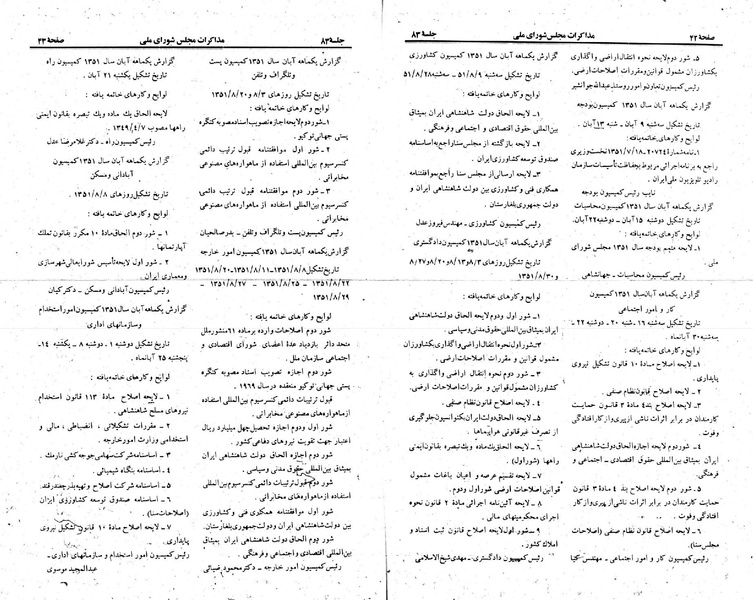 صفحهٔ ۲۲
مذاکرات مجلس شورای ملی
جلسهٔ ۸۳
۵ـ شور دوم لایحه نحوه انتقال اراضی واگذاری
بکشاورزان مشمول قوانین ومقررات اصلاحات ارضی.
رئیس کمیسیون تعاون وامور روستا ـ عبدالله جوانشیر
گزارش یکماهه آبان سال ۱۳۵۱ کمیسیون بودجه
سه‌شنبه ۹ آبان ـ شنبه ۱۳ آبان.
لوایح و کارهای خاتمه یافته:
راجع به برنامه اجرائی مربوط بحفاظت تأسیسات سازمان
رادیو تلویزیون ملی ایران.
نایب رئیس کمیسیون بودجه
گزارش یکماهه آبان سال ۱۳۵۱ کمیسیون محاسبات
تاریخ تشکیل دوشنبه ۱۵ آبان ـ دوشنبه ۲۲ آبان.
لوایح و کارهای خاتمه یافته:
۱ـ لایحه متمم بودجه سال ۱۳۵۱ مجلس شورای
ملی.
رئیس کمیسیون محاسبات ـ جهانشاهی
گزارش یکماهه آبان سال ۱۳۵۱ کمیسیون
کار و امور اجتماعی
تاریخ تشکیل سه‌شنبه ۱۶ـ شنبه ۲۰ ـ دوشنبه ۲۲ ـ
سه‌شنبه ۳۰ آبانماه.
لوایح و کارهای خاتمه یافته:
۱ ـ لایحه اصلاح مادهٔ ۱۰ قانون تشکیل نیروی
پایداری.
۲ ـ لایحه اصلاح قانون نظام صنفی.
۳ ـ لایحه اصلاح بند ۴ مادهٔ ۳ قانون حمایت
کارمندان در برابر اثرات ناشی از پیری و از کار افتادگی
وفوت.
۴ـ شور دوم لایحه اجازه الحاق دولت شاهنشاهی
ایران بمیثاق بین‌المللی حقوق اقتصادی ـ اجتماعی و
فرهنگی.
۵ـ شور دوم لایحه اصلاح بند ۴ مادهٔ ۳ قانون
حمایت کارمندان در برابر اثرات ناشی از پیری و از کار
افتادگی و فوت.
۶ـ لایحه اصلاح قانون نظام صنفی (اصلاحات
مجلس سنا).
رئیس کمیسیون کار و امور اجتماعی ـ مهندس کیا
گزارش یکماهه آبان سال ۱۳۵۱ کمیسیون کشاورزی
تاریخ تشکیل سه‌شنبه ۵۱/۸/۹ ـ سه‌شنبه ۵۱/۸/۲۸
لوایح و کارهای خاتمه یافته:
۱ـ لایحه الحاق دولت شاهنشاهی ایران بمیثاق
بین‌المللی حقوق اقتصادی و اجتماعی وفرهنگی.
۲ـ لایحه بازگشته از مجلس سنا راجع به اساسنامه
صندوق توسعه کشاورزی ایران.
۳ـ لایحه ارسالی از مجلس سنا راجع بموافقتنامه
همکاری فنی و کشاورزی بین دولت شاهنشاهی ایران و
دولت جمهوری بلغارستان.
رئیس کمیسیون کشاورزی ـ مهندس فیروز عدل
گزارش یکماهه آبان سال ۱۳۵۱ کمیسیون دادگستری
تاریخ تشکیل روزهای ۸/۳ و ۸/۱۳ و ۸/۲۰ و ۸/۲۷
و ۱۳۵۱/۸/۳۰
لوایح و کارهای خاتمه یافته:
۱ـ لایحه اجازه الحاق دولت شاهنشاهی
ایران بمیثاق بین‌المللی حقوق مدنی و سیاسی.
۲ـ شور اول نحوه انتقال اراضی واگذاری بکشاورزان
مشمول قوانین و مقررات اصلاحات ارضی.
۳ ـ شور دوم نحوه انتقال اراضی واگذاری به
کشاورزان مشمول قوانین و مقررات اصلاحات ارضی.
۴ ـ لایحه اصلاح قانون نظام صنفی.
۵ ـ لایحه الحاق دولت ایران بکنوانسیون جلوگیری
از تصرف غیرقانونی هواپیماها.
۶ ـ لایحه الحاق یک ماده ویک تبصره بقانون ایمنی
راهها (شور اول).
۷ ـ لایحه تقسیم عرصه و اعیان باغات مشمول
قوانین اصلاحات ارضی شور اول و دوم.
۸ ـ لایحه آئین‌نامه اجرائی مادهٔ ۲ قانون نحوه
اجرای محکومیتهای مالی.
۹ ـ شور اول لایحه اصلاح قانون ثبت اسناد و
املاک کشور.
رئیس کمیسیون دادگستری ـ مهدی شیخ‌الاسلامی
جلسهٔ ۸۳
مذاکرات مجلس شورای ملی
صفحهٔ ۲۳
گزارش یکماهه آبان سال ۱۳۵۱ کمیسیون پست
وتلگراف وتلفن
تاریخ تشکیل روزهای ۸/۳ و ۱۳۵۱/۸/۲۰
لوایح و کارهای خاتمه یافته:
۱ـ شور دوم لایحه اجازه تصویب اسناد مصوبه کنگره
پستی جهانی توکیو.
۲ ـ شور اول موافقتنامه قبول ترتیبات دائمی
کنسرسیوم بین‌المللی استفاده از ماهواره‌های مصنوعی
مخابراتی.
۳ ـ شور دوم موافقتنامه قبول ترتیبات دائمی
کنسرسیوم بین‌المللی استفاده از ماهواره‌های مصنوعی
مخابراتی.
رئیس کمیسیون پست وتلگراف وتلفن ـ بدر صالحیان
گزارش یکماهه آبان سال ۱۳۵۱ کمیسیون امور خارجه
تاریخ تشکیل ۱۳۵۱/۸/۸ـ۱۳۵۱/۸/۱۱ـ۱۳۵۱/۸/۲۰ـ
۱۳۵۱/۸/۲۲ ـ ۱۳۵۱/۸/۲۵ ـ ۱۳۵۱/۸/۲۷ ـ
۱۳۵۱/۸/۲۹
لوایح و کارهای خاتمه یافته:
شور دوم اصلاحات وارده برماده ۶۱ منشور ملل
متحد دائر بازدیاد عدهٔ اعضای شورای اقتصادی و
اجتماعی سازمان ملل.
شور دوم اجازه تصویب اسناد مصوبه کنگره
جهانی توکیو منعقده درسال ۱۹۶۹.
قبول ترتیبات دائمی کنسرسیوم بین‌المللی استفاده
ازماهواره‌های مصنوعی مخابراتی.
شور اول ودوم اجازه تحصیل چهل میلیارد ریال
اعتبار جهت تقویت نیروهای دفاعی کشور.
شور دوم اجازه الحاق دولت شاهنشاهی ایران
بمیثاق بین‌المللی حقوق مدنی و سیاسی.
شور دوم قبول ترتیبات دائمی کنسرسیوم بین‌المللی
استفاده ازماهواره‌های مخابراتی.
شور اول موافقتنامه همکاری فنی و کشاورزی
بین دولت شاهنشاهی ایران ودولت جمهوری بلغارستان.
شور دوم الحاق دولت شاهنشاهی ایران بمیثاق
بین‌المللی اقتصادی و اجتماعی و فرهنگی.
رئیس کمیسیون امور خارجه ـ دکتر محمود ضیائی
گزارش یکماهه آبان سال ۱۳۵۱ کمیسیون راه
تاریخ تشکیل یکشنبه ۲۱ آبان.
لوایح و کارهای خاتمه یافته:
لایحه الحاق یک ماده ویک تبصره بقانون ایمنی
راهها مصوب ۱۳۴۹/۴/۷.
رئیس کمیسیون راه ـ دکتر غلامرضا عدل
گزارش یکماهه آبان سال ۱۳۵۱ کمیسیون
آبادانی ومسکن
تاریخ تشکیل روزهای ۱۳۵۱/۸/۸
لوایح و کارهای خاتمه یافته:
۱ ـ شور دوم الحاق مادهٔ ۱۰ مکرر بقانون تملک
آپارتمانها.
۲ ـ شور اول لایحه تأسیس شورایعالی شهرسازی
ومعماری ایران.
رئیس کمیسیون آبادانی ومسکن ـ دکتر کیان
گزارش یکماهه آبان سال ۱۳۵۱ کمیسیون امور استخدام
وسازمانهای اداری
تاریخ تشکیل دوشنبه ۱ـ دوشنبه ۸ ـ یکشنبه ۱۴ـ
پنجشنبه ۲۵ آبانماه.
لوایح و کارهای خاتمه یافته:
۱ ـ لایحه اصلاح مادهٔ ۱۱۳ قانون استخدام
نیروهای مسلح شاهنشاهی.
۲ ـ مقررات تشکیلاتی، انضباطی، مالی و
استخدامی وزارت امور خارجه.
۳ ـ اساسنامه شرکت سهامی جوجه کشی نارمک.
۴ ـ اساسنامه بنگاه شیمیائی.
۵ ـ اساسنامه شرکت اصلاح و تهیه بذر چغندرقند
۶ ـ اساسنامه صندوق توسعه کشاورزی ایران
(اصلاحات سنا).
۷ ـ لایحه اصلاح مادهٔ ۱۰ قانون تشکیل نیروی
پایداری.
رئیس کمیسیون امور استخدام و سازمانهای اداری ـ
عبدالمجید موسوی